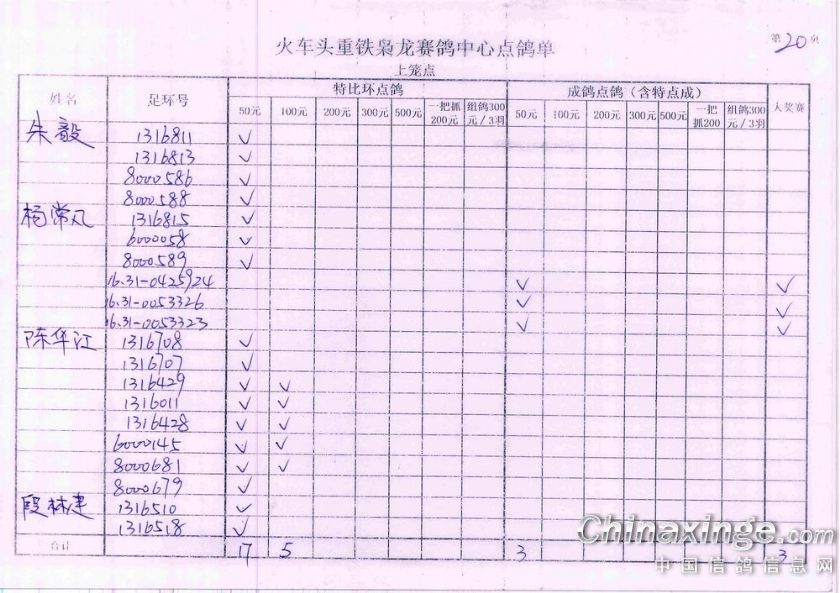 第20页
火车头重铁枭龙赛鸽中心点鸽单
上笼点
姓名 足环号 特比环点鸽 成鸽点鸽（含特点成） 大奖赛
50元 100元 200元 300元 500元 一把抓200元 组鸽300元／3羽 50元 100元 200元 300元 500元 一把抓200 组鸽300元／3羽
朱毅 1316811 ✓
1316813 ✓
8000586 ✓
8000588 ✓
杨常凡 1316815 ✓
6000058 ✓
8000589 ✓
16.31-0425924 ✓ ✓
16.31-0053326 ✓ ✓
16.31-0053323 ✓ ✓
陈华江 1316708 ✓
1316707 ✓
1316429 ✓ ✓
1316011 ✓ ✓
1316428 ✓ ✓
6000145 ✓ ✓
8000681 ✓ ✓
8000679 ✓
段林建 1316510 ✓
1316518 ✓
合计 17 5 3 3
Chinaxinge.com
中国信鸽信息网